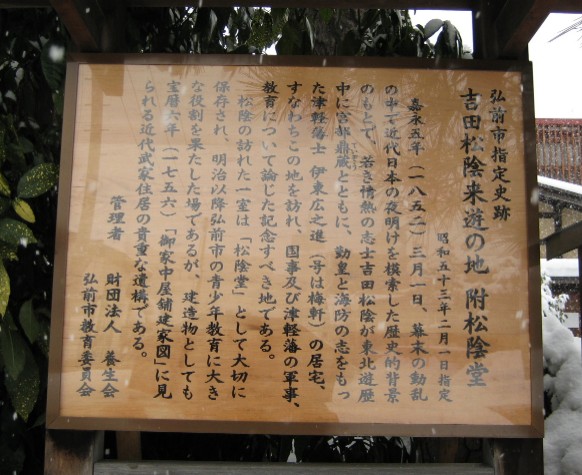 弘前市指定史跡
吉田松陰来遊の地 附松陰堂
昭和五十三年二月一日指定
嘉永五年(一八五二)三月一日、幕末の動乱
の中で近代日本の夜明けを模索した歴史的背景
のもとで、若き情熱の志士吉田松陰が東北遊歴
中に宮部鼎蔵とともに、勤皇と海防の志をもっ
た津軽藩士 伊東広之進(号は梅軒)の居宅、
すなわちこの地を訪れ、国事及び津軽藩の軍事、
教育について論じた記念すべき地である。
松陰の訪れた一室は「松陰堂」として大切に
保存され、明治以降弘前市の青少年教育に大き
な役割を果たした場であるが、建造物としても
宝暦六年(一七五六)「御家中屋舗建家図」に見
られる近代武家住居の貴重な遺構である。
管理者 財団法人 養生会
弘前市教育委員会